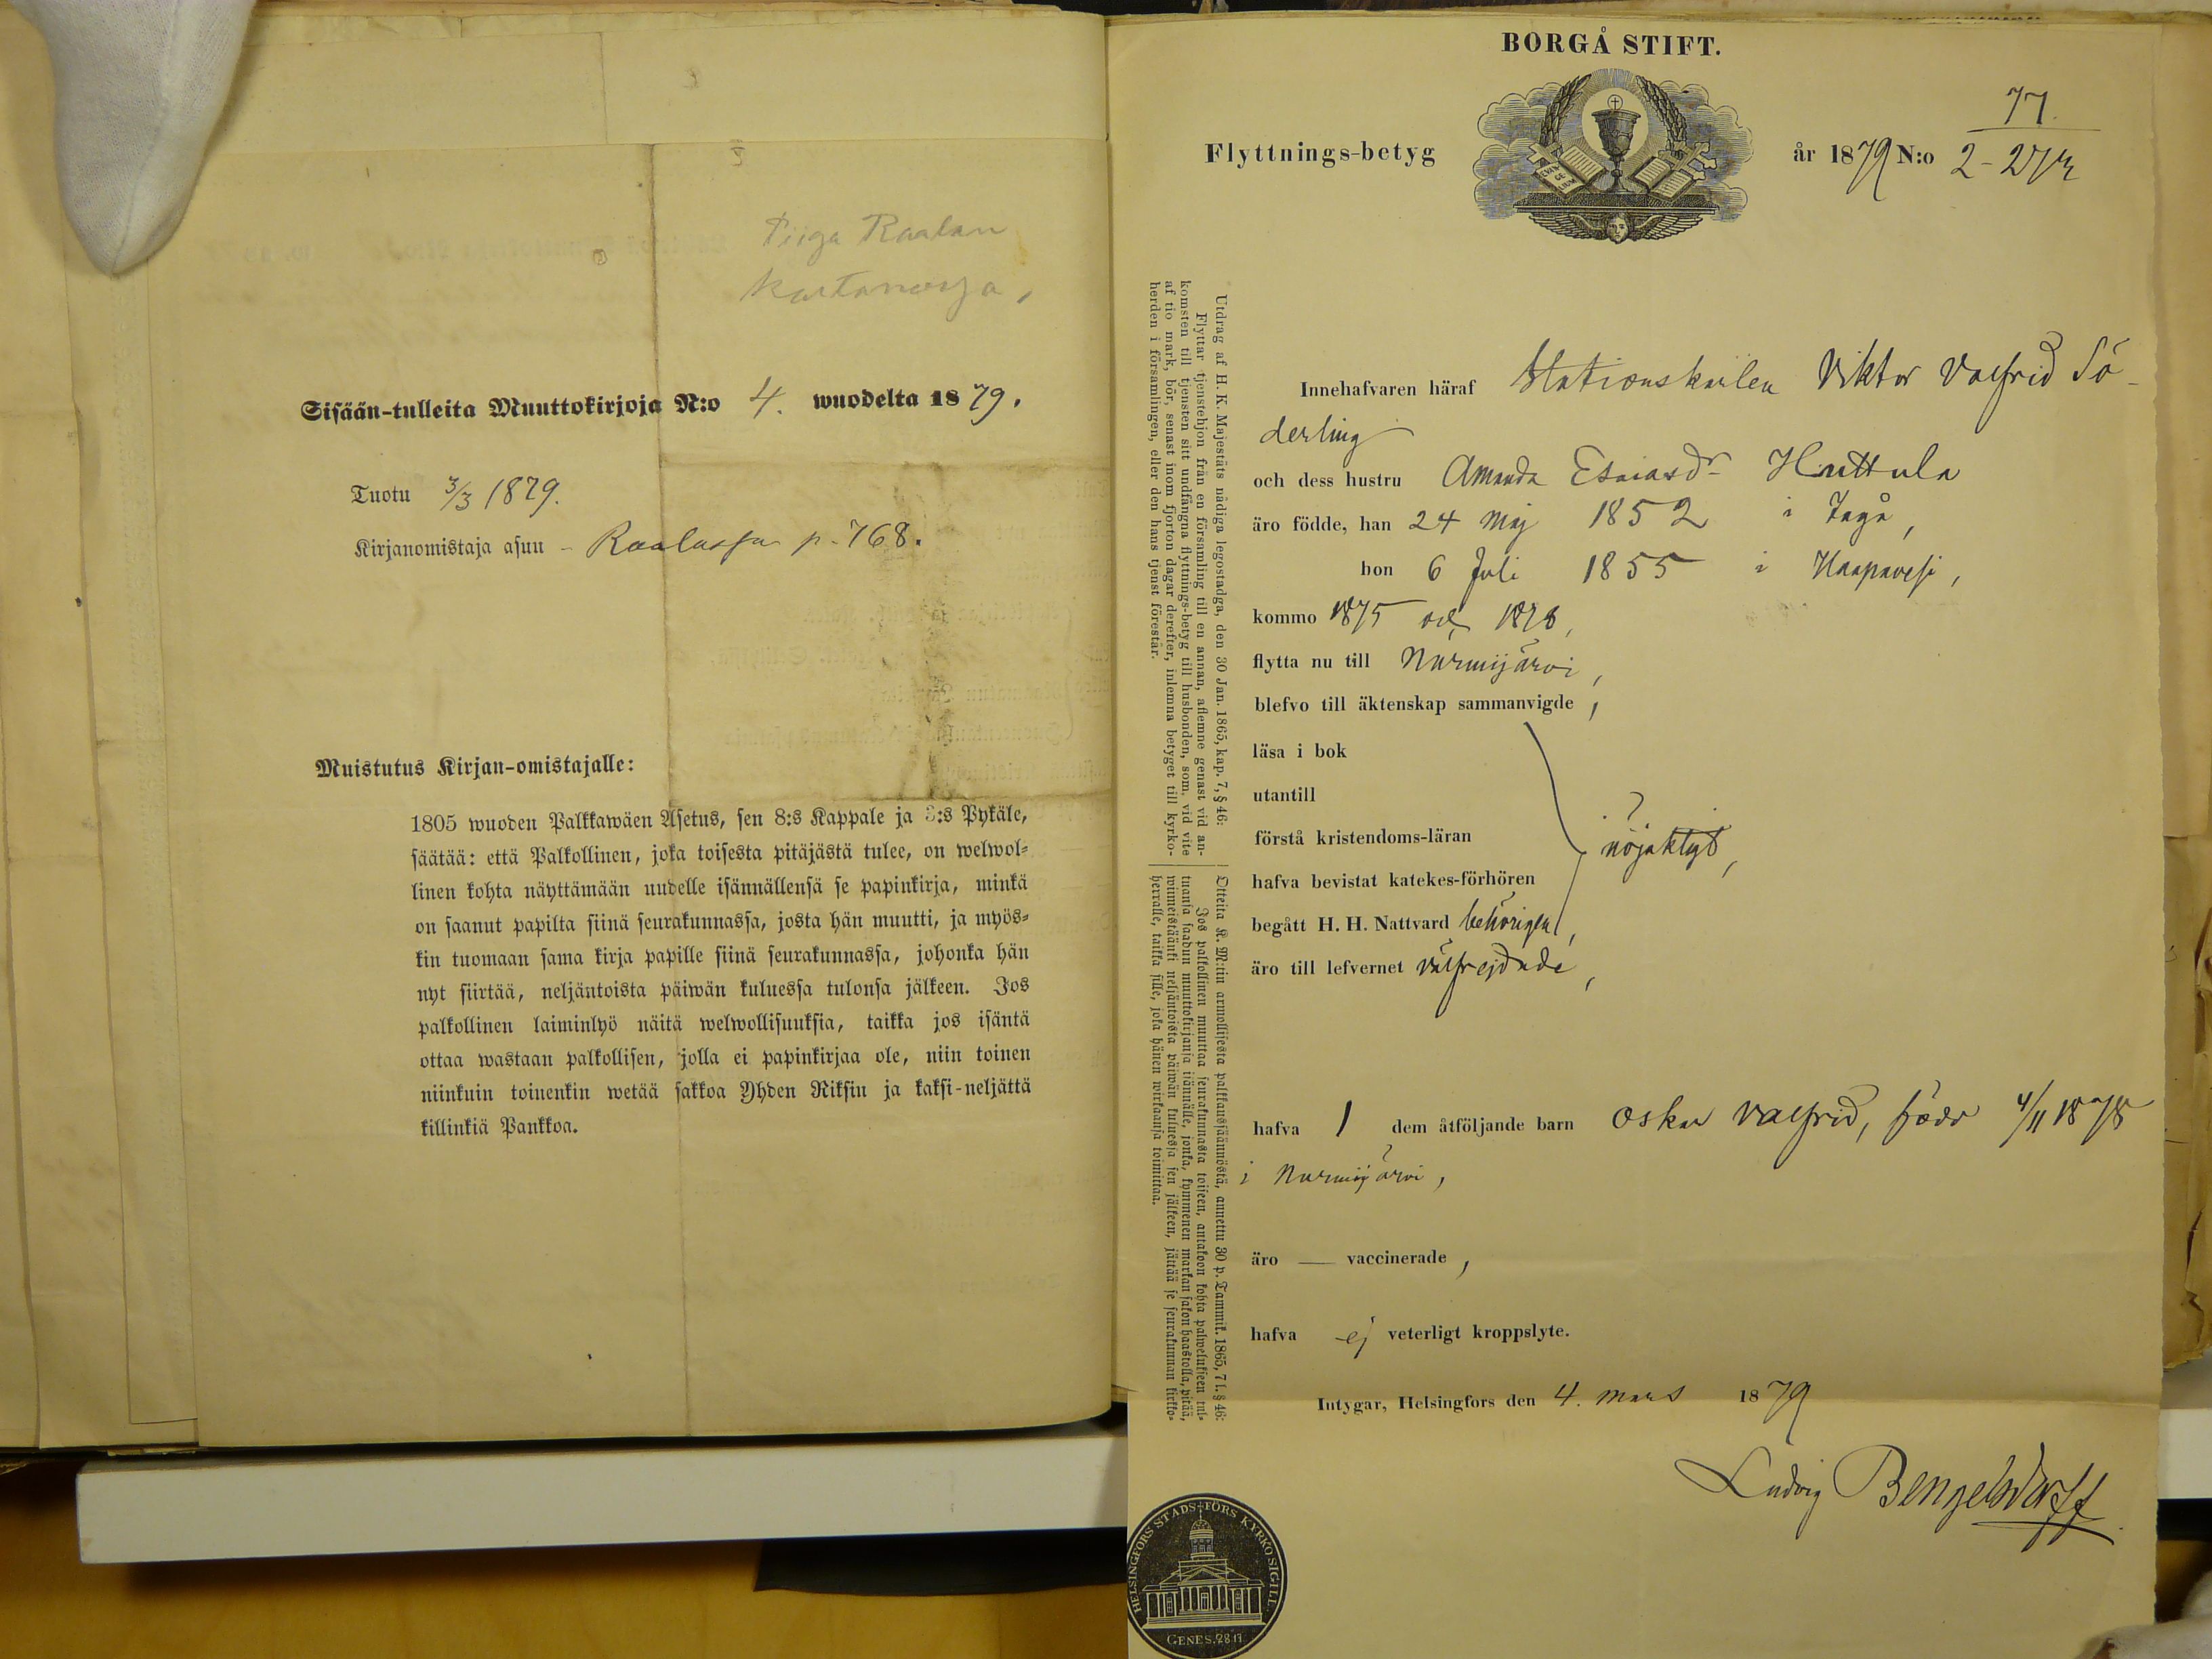 Piiga Raalan
kartanossa,
Sisään-tulleita Muuttokirjoja N:o 4. wuodelta 1879.
Tuotu 3/3 1879.
Kirjanomistaja asuu - Raalassa p. 768.
Muistutus Kirjan-omistajalle:
1805 wuoden Palkkawäen Asetus, sen 8:s Kappale ja 3:s Pykäle,
säätää: että Palkollinen, joka toisesta pitäjästä tulee, on welwol=
linen kohta näyttämään uudelle isännällensä se papinkirja, minkä
on saanut papilta siinä seurakunnassa, josta hän muutti, ja myös=
kin tuomaan sama kirja papille siinä seurakunnassa, johonka hän
nyt siirtää, neljäntoista päiwän kuluessa tulonsa jälkeen. Jos
palkollinen laiminlyö näitä welwollisuuksia, taikka jos isäntä
ottaa wastaan palkollisen, jolla ei papinkirjaa ole, niin toinen
niinkuin toinenkin wetää sakkoa Yhden Riksin ja kaksi-neljättä
killinkiä Pankkoa.
BORGÅ STIFT.
77.
Flyttnings-betyg
år 1879 N:o
Utdrag af H. K. Majestäts nådiga legostadga, den 30 Jan. 1865, kap. 7, § 46:
Flyttar tjenstehjon från en församling till en annan, aflemne genast vid an-
komsten till tjensten sitt undfångna flyttnings-betyg till husbonden, som, vid vite
af tio mark, bör, senast inom fjorton dagar derefter, inlemna betyget till kyrko-
herden i församlingen, eller den hans tjenst förestår.
Otteita K. M:tin armollisesta palkkaussäännöstä, annettu 30 p. Tammik. 1865, 7 l. § 46:
Jos palkollinen muuttaa seurakunnasta toiseen, antakoon kohta palwelukseen tul=
tuansa saadun muuttokirjansa isännälle, jonka, kymmenen markan sakon haastolla, pitää,
wiimeistäänki neljäntoista päiwän kuluessa sen jälkeen, jättää se seurakunnan kirkko=
herralle, taikka sille, joka hänen wirkaansa toimittaa.
Innehafvaren häraf Stationskarlen Viktor Valfrid Sö-
derling
och dess hustru Amanda Esaiasdr Huttula
äro födde, han 24 Maj 1852 i Ingå,
hon 6 Juli 1855 i Haapavesi,
kommo 1875 och 1878,
flytta nu till Nurmijärvi,
blefvo till äktenskap sammanvigde,
läsa i bok
utantill
förstå kristendoms-läran nöjaktigt,
hafva bevistat katekes-förhören
begått H. H. Nattvard behörigen,
äro till lefvernet välfrejdade,
hafva 1 dem åtföljande barn Oskar Valfrid, född 4/11 1878
i Nurmijärvi,
äro — vaccinerade,
hafva ej veterligt kroppslyte.
Intygar, Helsingfors den 4. mars 1879
Ludvig Bengelsdorff
HELSINGFORS STADS-FÖRS KYRKO SIGILL.
GENES. 28.17